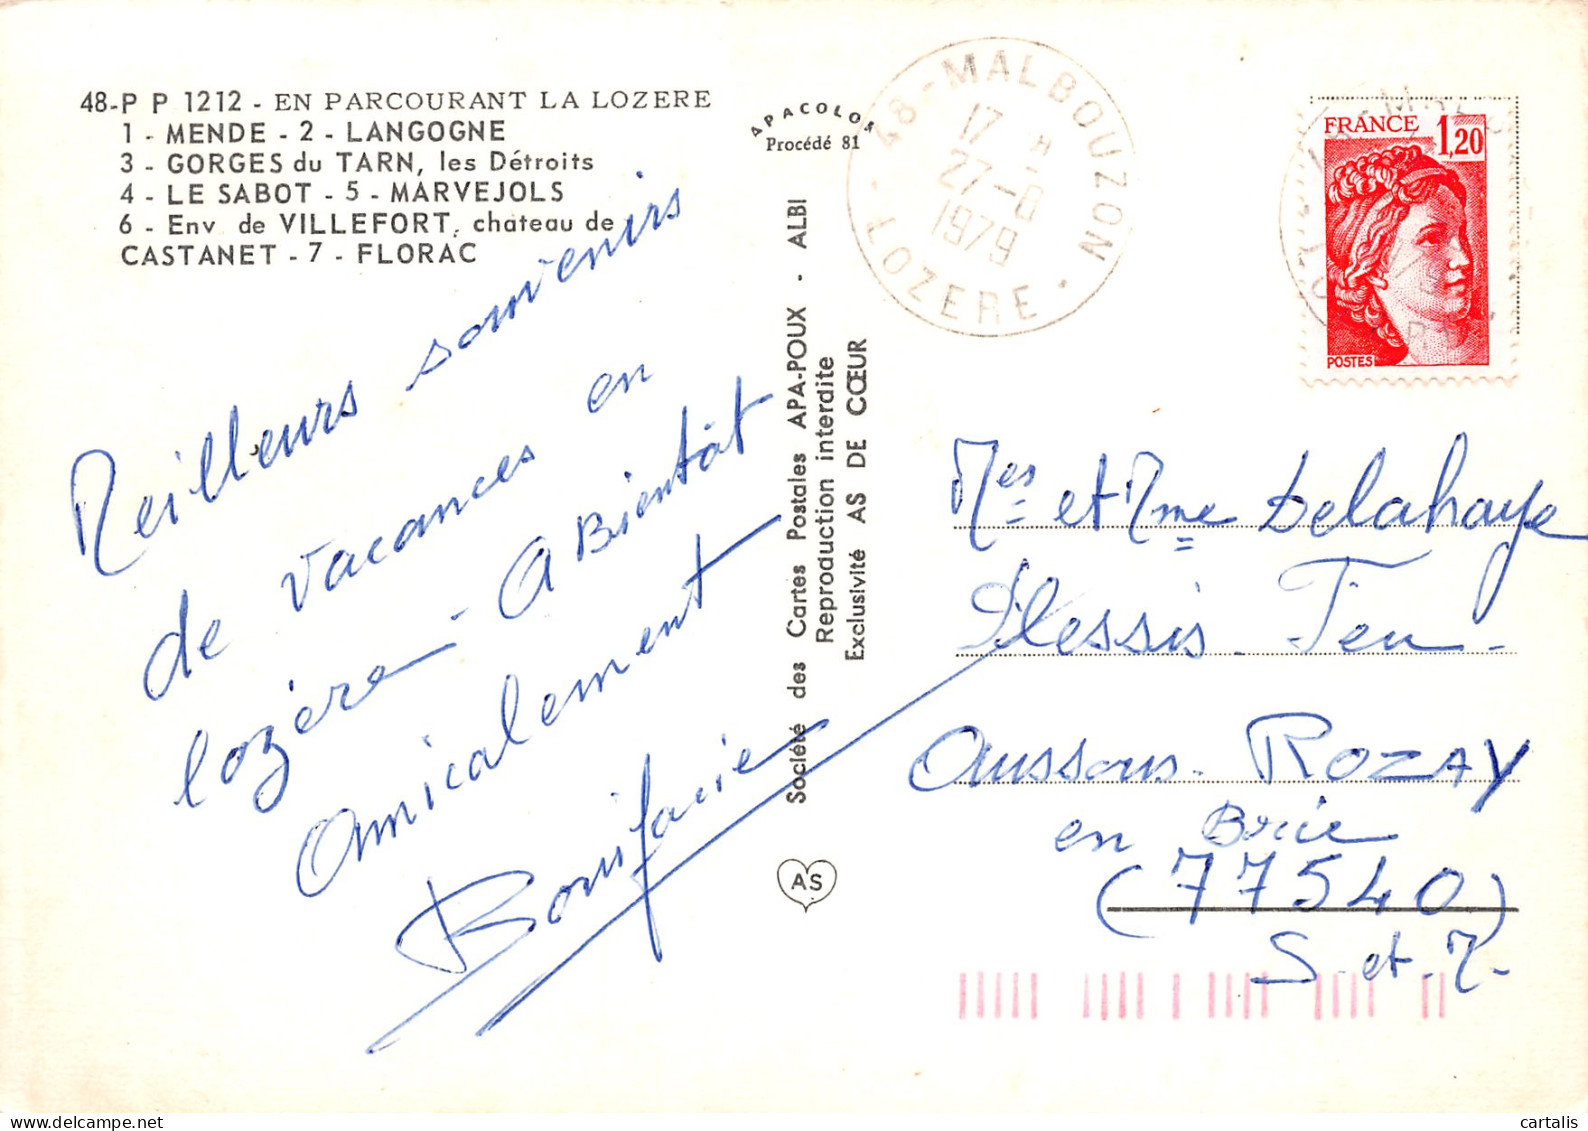 48-P P 1212 - EN PARCOURANT LA LOZERE
1 - MENDE - 2 - LANGOGNE
3 - GORGES du TARN, les Détroits
4 - LE SABOT - 5 - MARVEJOLS
6 - Env de VILLEFORT, chateau de
CASTANET - 7 - FLORAC
Meilleurs souvenirs
de vacances en
lozère - A Bientôt
Amicalement
Bonifacie
APACOLOR
Procédé 81
Société des Cartes Postales APA-POUX - ALBI
Reproduction interdite
Exclusivité AS DE CŒUR
AS
48 - MALBOUZON
17 H
27-8
1979
LOZERE
FRANCE 1,20
POSTES
Mes et Mme Delahaye
Plessis - Feu -
Aussous - ROZAY
en Brie
(77540)
S. et. M.
cartalis
delcampe.net